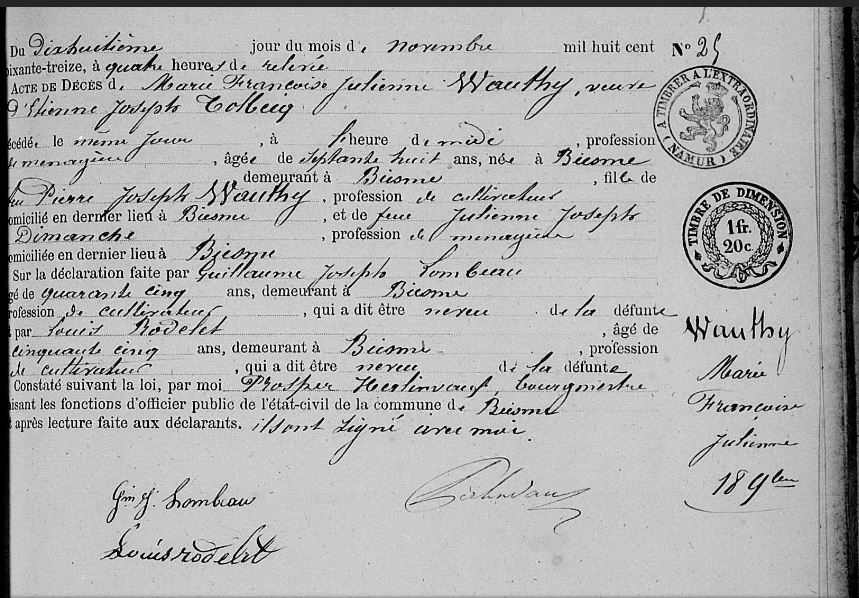 Du dixhuitième jour du mois de novembre mil huit cent
oixante-treize, à quatre heures de relevée
ACTE DE DÉCÈS de Marie Françoise Julienne Wauthy, veuve
d'Etienne Joseph
écédée le même jour, à l'heure de midi, profession
de menagère, âgée de septante huit ans, née à Biesme
demeurant à Biesme, fille de
feu Pierre Joseph Wauthy, profession de cultivateur
omicilié en dernier lieu à Biesme, et de feue Julienne Joseph
Dimanche, profession de menagère
omiciliée en dernier lieu à Biesme
Sur la déclaration faite par Guillaume Joseph Lombeau
gé de quarante cinq ans, demeurant à Biesme
rofession de cultivateur, qui a dit être neveu de la défunte
t par Louis Rodelet, âgé de
cinquante cinq ans, demeurant à Biesme, profession
de cultivateur, qui a dit être neveu de la défunte
Constaté suivant la loi, par moi Prosper bourgmestre
isant les fonctions d'officier public de l'état-civil de la commune de Biesme
t après lecture faite aux déclarants. ils ont signé avec moi.
G.m J. Lombeau
Louis rodelet
N° 25
A TIMBRER A L'EXTRAORDINAIRE
(NAMUR)
TIMBRE DE DIMENSION
1 fr.
20 c.
Wauthy
Marie
Françoise
Julienne
18 9bre